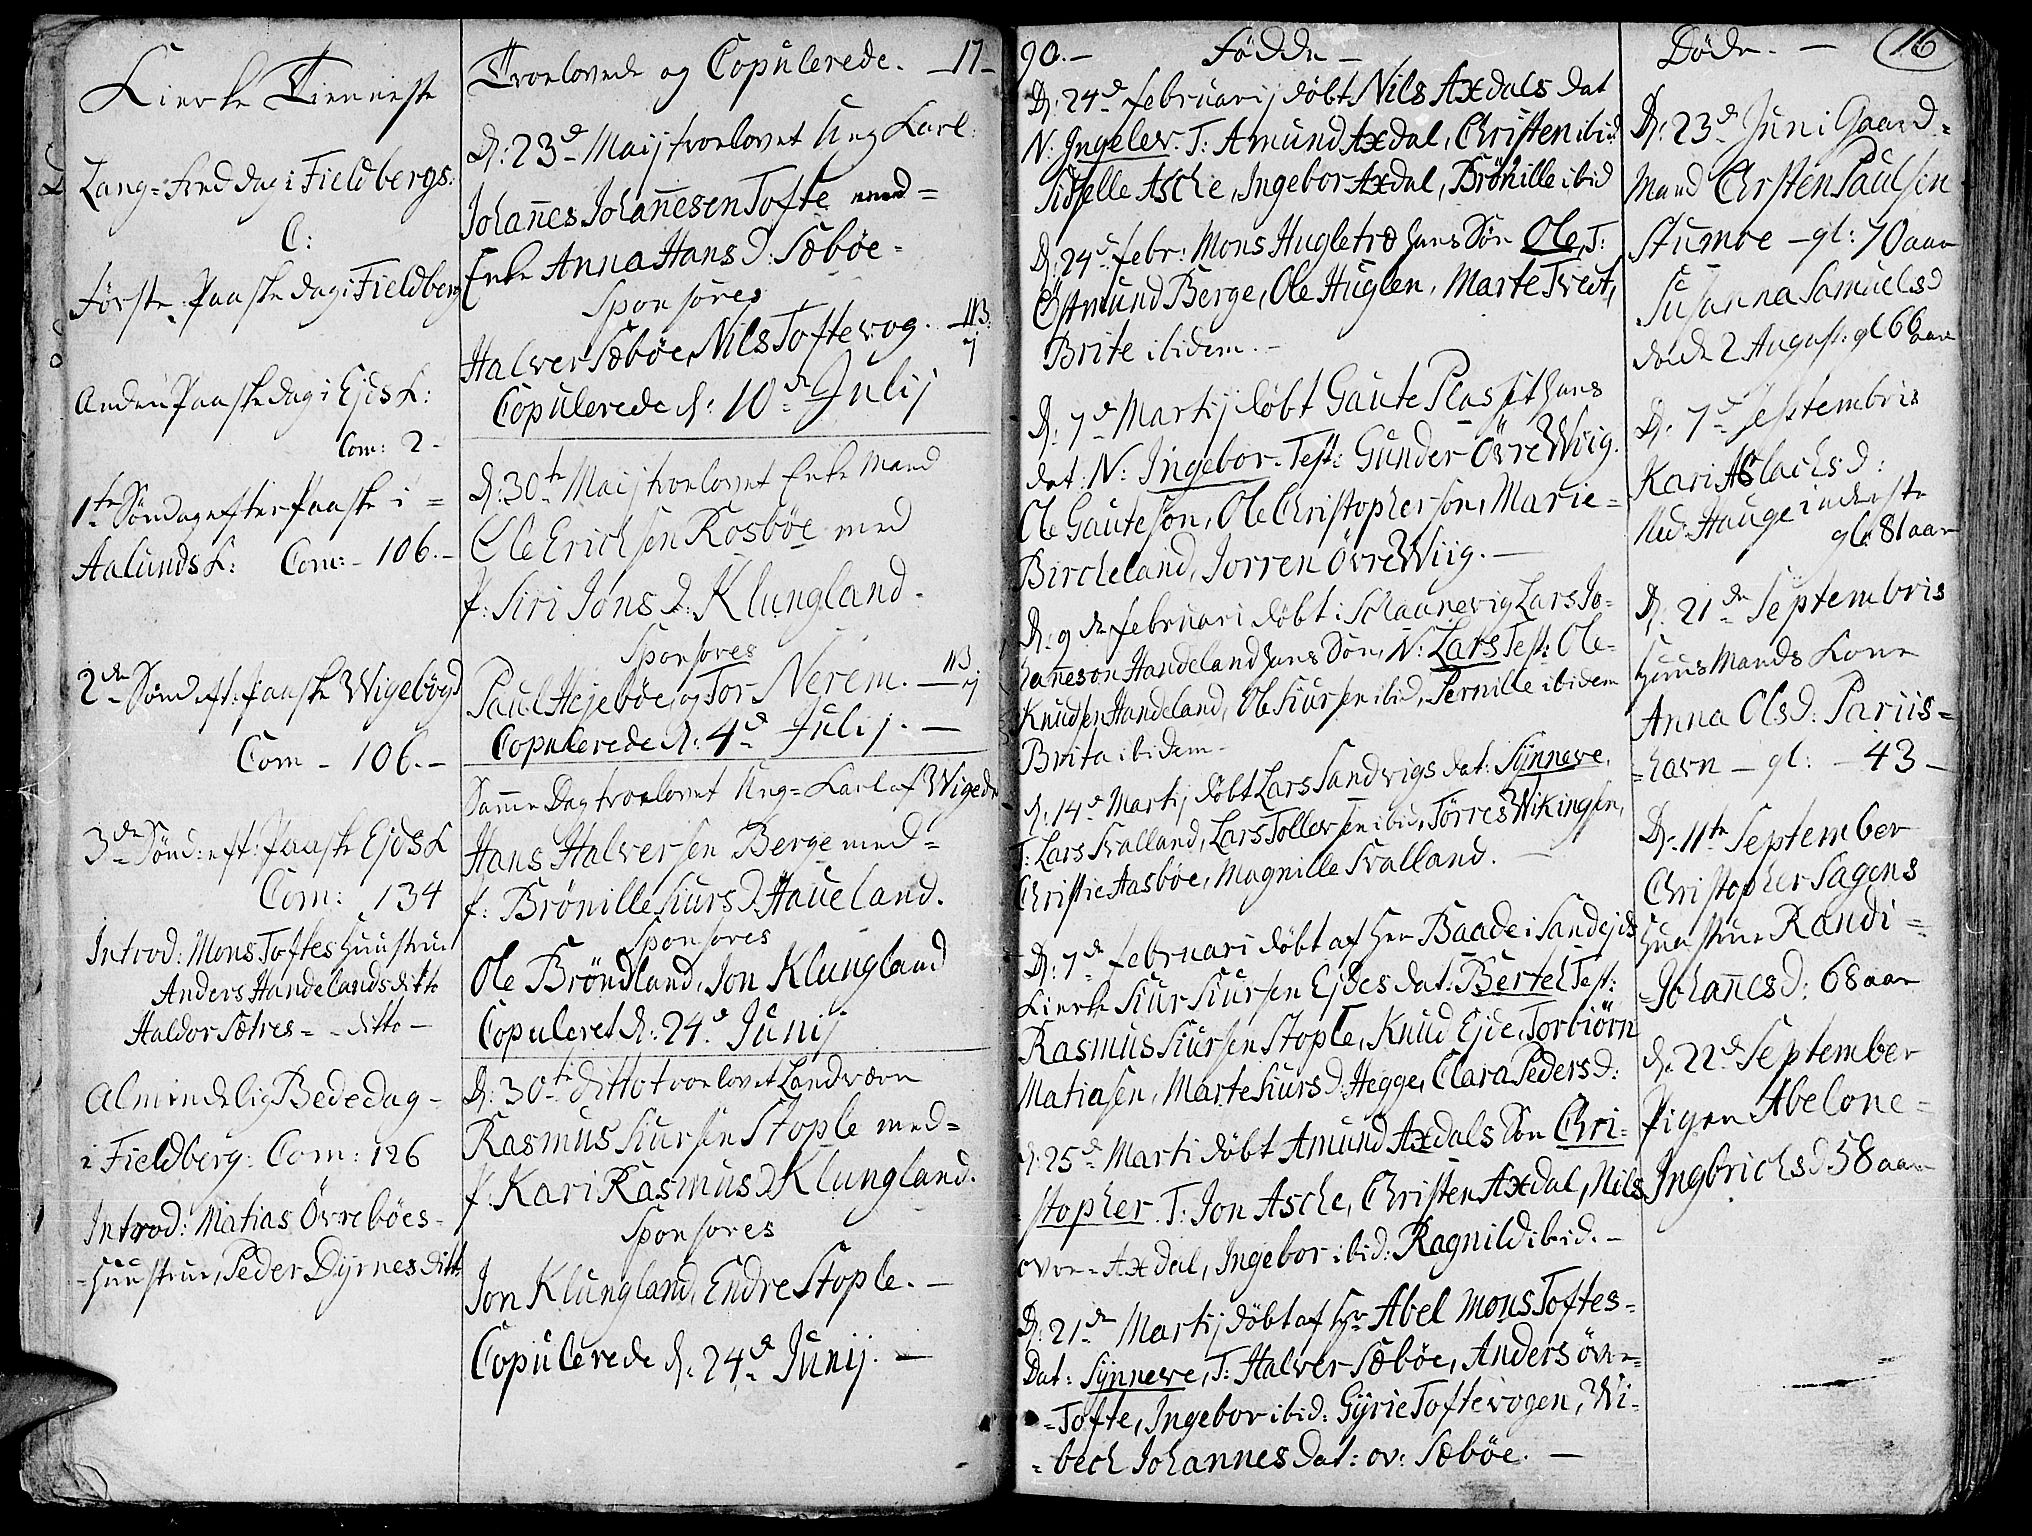 Kirke Tienneste
Lang-Freddag i Fieldbergs:
C:
Første Paaskedag i Fieldberg
Anden Paaskedag i Ejds K:
Com: 2 -
1te Søndag efter Paaske i =
Aalunds K: Com: - 106. -
2de Sønd: eft: Paaske Wigebögd
Com - 106. -
3de Sønd: eft: Paaske Ejds K
Com: 134
Introd: Mons Toftes Huustrue
Anders Handelands ditto
Haldor Sætres = - ditto -
Almindelig Bededag -
i Fieldberg: Com: 126
Introd: Matias Övreböes -
Huustrue, Peder Dyrnes ditto
Trovlovede og Copulerede. - 17 -
D: 23de Maij trovlovet Ung Karl:
Johannes Johannesen Tofte med =
Enke Anna Hans D: Sæböe -
Sponsores
Halver Sæböe, Nils Toftevog.
Copulerede d: 10de Julij
D: 30te Maij trovlovet Enke Mand
Ole Erichsen Rosböe med
p: Siri Jons D: Klungland.
Sponsores
Paul Hejeböe, og Tor Nerem.
Copulerede d: 4de Julij. -
Samme Dag trovlovet Ung = Karl af Wigede
Hans Halversen Berge med =
p: Brönille Siurs D: Haueland.
Sponsores
Ole Bröndland, Jon Klungland
Copuleret d: 24de Junij
D: 30te ditto trovlovet Landværn
Rasmus Siursen Stople med =
p. Kari Rasmus D Klungland.
Sponsores
Jon Klungland, Endre Stople. -
Copulerede d: 24de Junij. -
90. - Födde -
D: 24de februarij döbt Nils Axdals dat
N: Ingelev. T: Amund Axdal, Christen ibid
Sidselle Asche, Ingebor Axdal, Brönille ibid
D: 24de febr: Mons Hugletræ hans Sön Ole, T:
Östmund Berge, Ole Huglen, Marte Tvedt,
Brite ibidem. -
D: 7de Martij döbt Gaute Plasset hans
dat: N: Ingebor. Test: Gunder Övre Wiig.
Ole Gauteson, Ole Christopherson, Marie =
Bircheland, Jorren Övre Wiig. -
D: 9de februari döbt i Schaanevig Lars Jo-
hanneson Handeland hans Sön, N: Lars Test: Ole -
Knudsen Handeland, Ole Siursen ibid, Pernille ibidem
Brita ibidem -
D: 14de Martij döbt Lars Sandvigs dat: Synneve,
T: Lars Svalland, Lars Tollevsen ibid, Törres Wikingsen,
Christie Aasböe, Magnille Svalland. -
D: 7de februari döbt af Her Baade i Sandejds
Kierke Siur Siursen Ejdes dat: Bertel Test:
Rasmus Siursen Stople, Knud Ejde, Torbiörn
Matiasen, Marte Siurs D. Hegge, Clara Peders d:
D: 25de Marti döbt Amund Axdals Sön Chri-
stopher. T: Jon Asche, Christen Axdal, Nils
ovre - Axdal, Ingebor ibid: Ragnild ibid. -
D: 21de Martij döbt af Hr Abel Mons Toftes =
Dat: Synneve, T: Halver Sæböe, Anders över =
= Tofte, Ingebor ibid: Gyrie Toftevogen, Wi-
= bech Johannes Dat: ov: Sæböe. -
Döde. - 16
D: 23de Juni Gaard =
Mand Chrsten Paulsen
Stumoe - gl: 70 aar
Susanna Samuels d
döde 2 August: gl 66 aar
D: 7de Septembris
Kari Aslachs d:
Hauge inderste
gl: 81 aar
D: 21de Septembris
Huus Mands Kone
Anna Ols d: Pariis =
= havn - gl: - 43 -
D: 11te September
Christopher Sagens
Huustrue Randi =
= Johannes d: 68 aar
d: 22de September
Pigen Abelone =
Ingbrichs d 58 aar